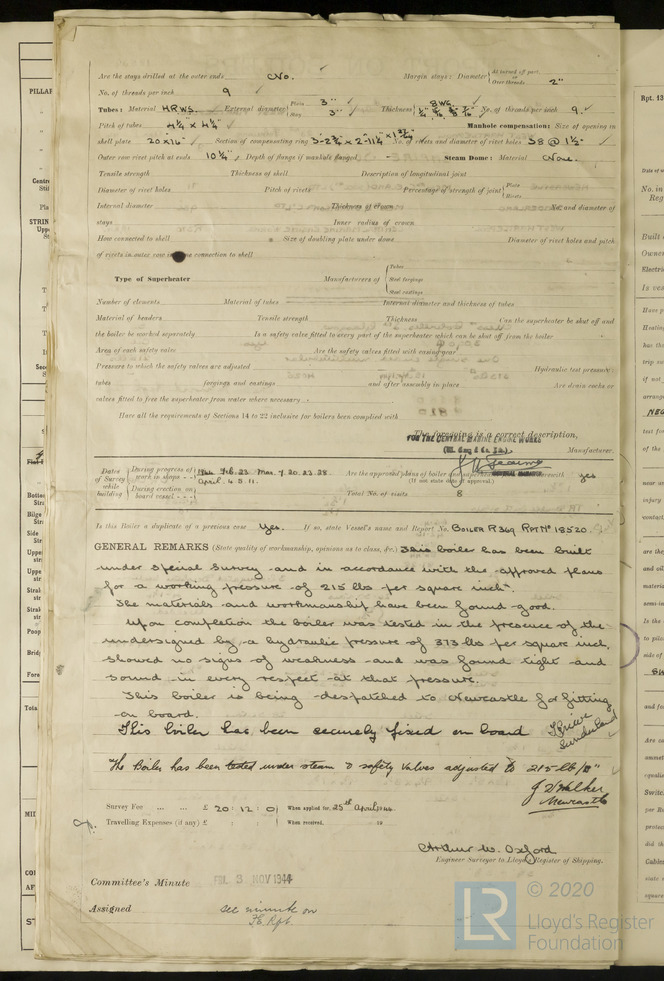 Are the stays drilled at the outer ends No. Margin stays: Diameter { At turned off part, or Over threads 2"
No. of threads per inch 9
Tubes: Material H.R.W.S. External diameter { Plain 3" Stay 3" Thickness { 8 WG. No. of threads per inch 9.
Pitch of tubes 4¼" x 4¼" Manhole compensation: Size of opening in
shell plate 20 x 16" Section of compensating ring No. of rivets and diameter of rivet holes 38 @ 1½"
Outer row rivet pitch at ends 10¼" Depth of flange if manhole flanged - Steam Dome: Material None.
Tensile strength Thickness of shell Description of longitudinal joint
Diameter of rivet holes Pitch of rivets Percentage of strength of joint { Plate Rivets
Internal diameter Thickness of crown No. and diameter of
stays Inner radius of crown
How connected to shell Size of doubling plate under dome Diameter of rivet holes and pitch
of rivets in outer row in dome connection to shell
Type of Superheater Manufacturers of { Tubes Steel forgings Steel castings
Number of elements Material of tubes Internal diameter and thickness of tubes
Material of headers Tensile strength Thickness Can the superheater be shut off and
the boiler be worked separately Is a safety valve fitted to every part of the superheater which can be shut off from the boiler
Area of each safety valve Are the safety valves fitted with easing gear
Pressure to which the safety valves are adjusted Hydraulic test pressure:
tubes forgings and castings and after assembly in place Are drain cocks or
valves fitted to free the superheater from water where necessary
Have all the requirements of Sections 14 to 22 inclusive for boilers been complied with
The foregoing is a correct description,
FOR THE CENTRAL MARINE ENGINE WORKS
Manufacturer.
Dates of Survey while building { During progress of work in shops - - Feb. 23. Mar. 7. 20. 23. 28. April. 4. 5. 11. Are the approved plans of boiler and superheater forwarded herewith yes
(If not state date of approval.)
During erection on board vessel - - - Total No. of visits 8
Is this Boiler a duplicate of a previous case Yes. If so, state Vessel's name and Report No. BOILER R369 RPT Nº 18520.
GENERAL REMARKS (State quality of workmanship, opinions as to class, &c.) This boiler has been built
under special survey and in accordance with the approved plans
for a working pressure of 215 lbs per square inch.
The materials and workmanship have been found good.
Upon completion the boiler was tested in the presence of the
undersigned by a hydraulic pressure of 373 lbs per square inch,
showed no signs of weakness and was found tight and
sound in every respect at that pressure.
This boiler is being despatched to Newcastle for fitting
on board.
This boiler has been securely fixed on board
Sunderland
The Boiler has been tested under steam & safety valves adjusted to 215 lb/□"
J Walker
Newcastle
Survey Fee ... ... £ 20 : 12 : 0 When applied for, 25th April 1944
Travelling Expenses (if any) £ : : When received, 19
Arthur W. Oxford
Engineer Surveyor to Lloyd's Register of Shipping.
Committee's Minute FRI. 3 NOV 1944
Assigned see minute on
F.E. Rpt.
LR © 2020
Lloyd's Register
Foundation